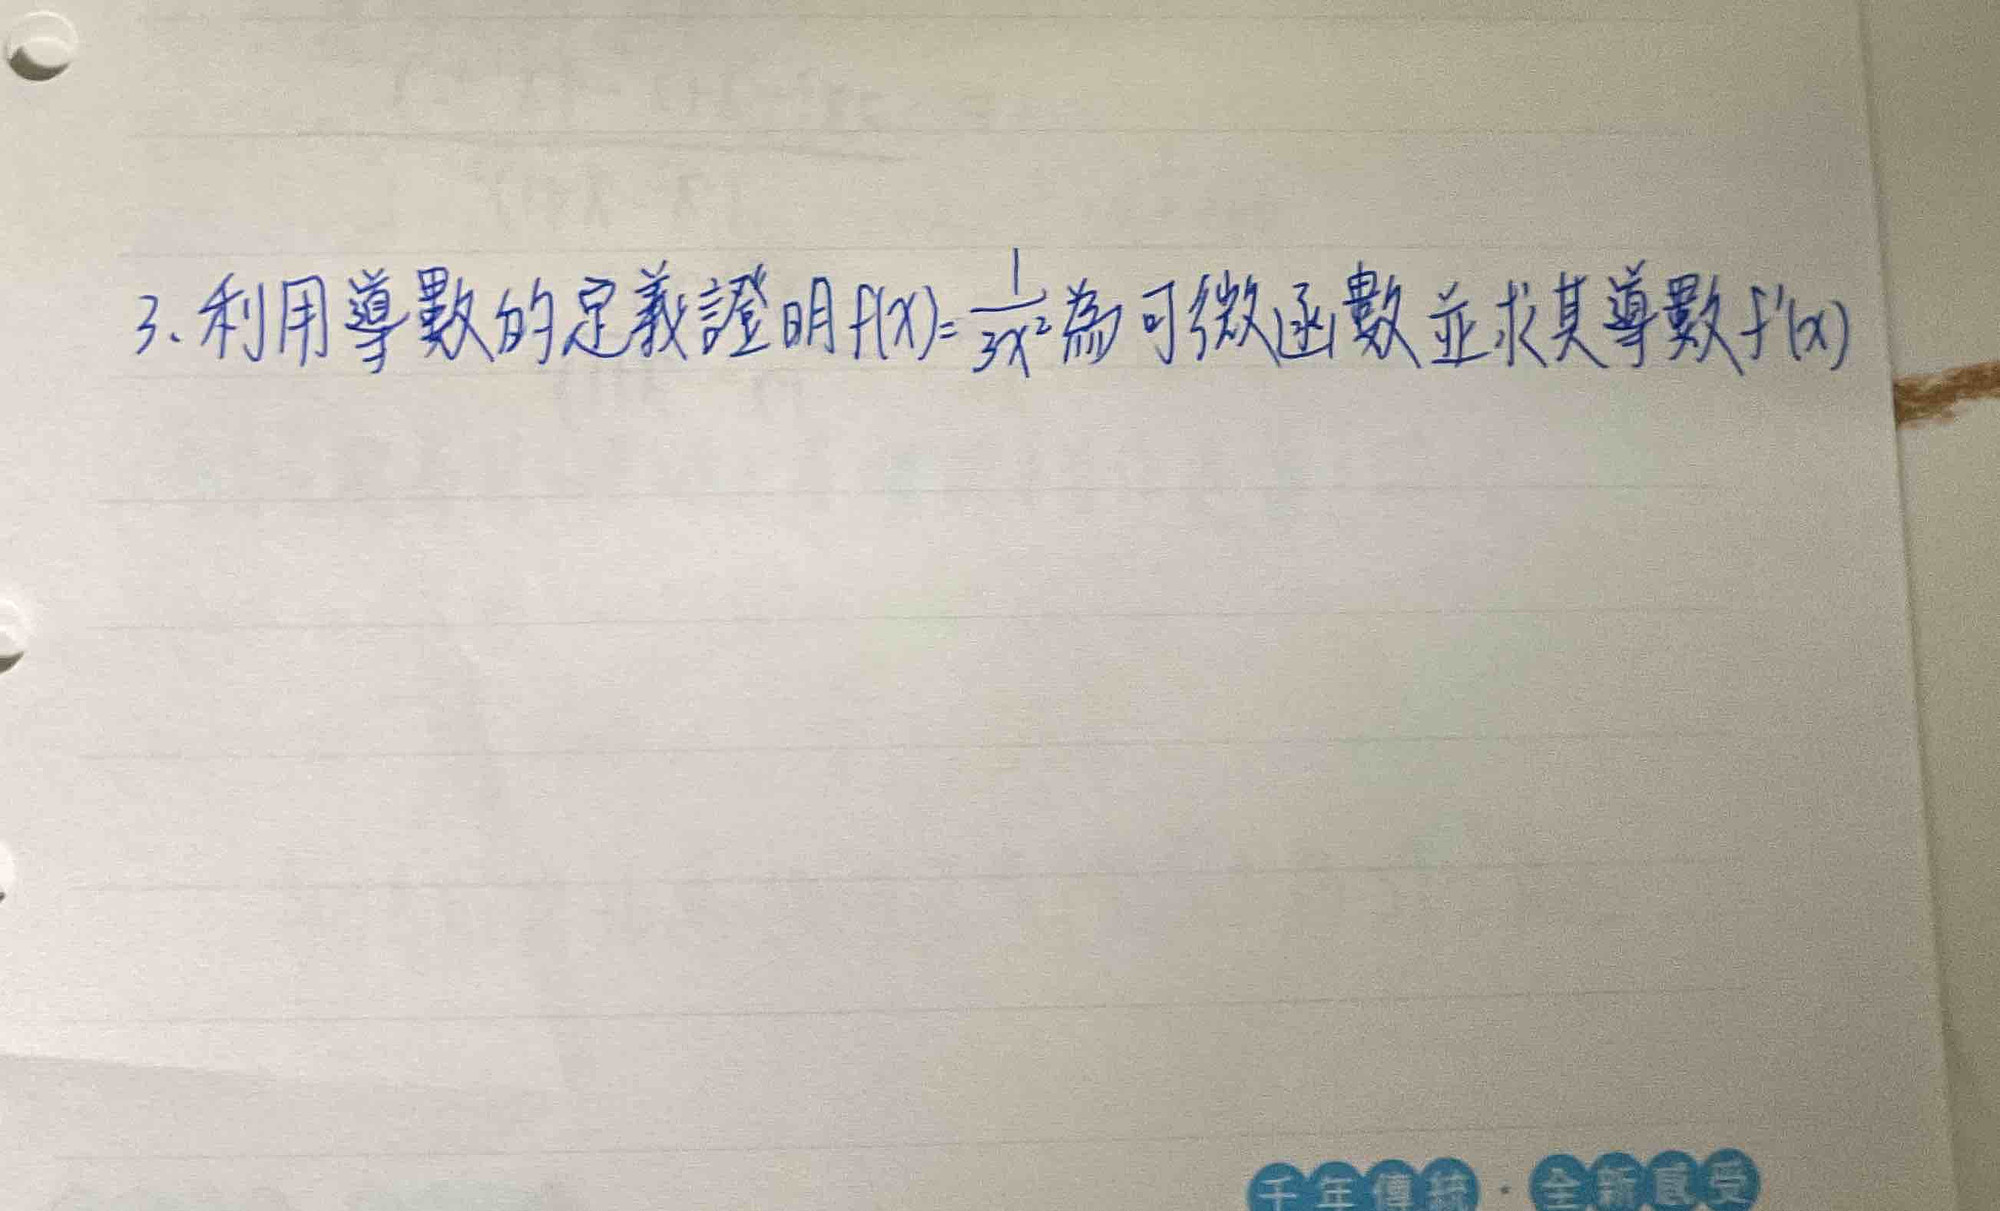 3、利用導數的定義證明f(x)=\frac{1}{3x²}為可微函數並求其導數f'(x)
千年傳統·全新感受